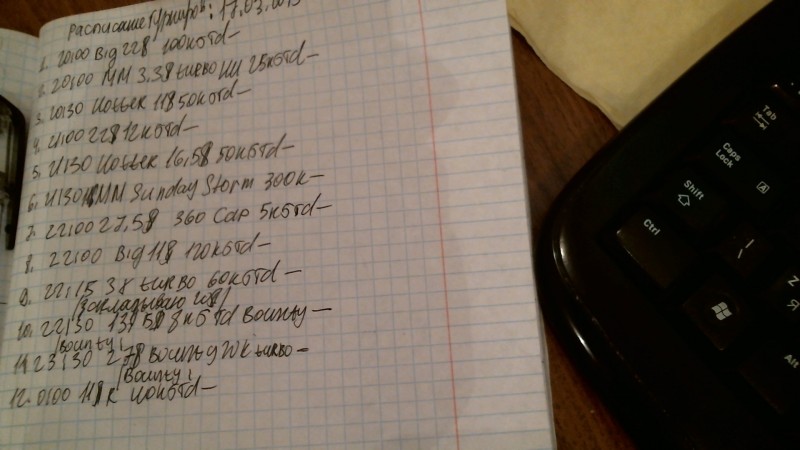 Расписание Турниров: 17.03.2013
1. 20:00 Big 22$ 100к Gtd –
2. 20:00 MM 3,3$ turbo НИ 25к Gtd –
3. 20:30 Hotter 11$ 50к Gtd –
4. 21:00 22$ 12к Gtd –
5. 21:30 Hotter 16,5$ 50к Gtd –
6. 21:30 MM Sunday Storm 300к –
7. 22:00 27,5$ 360 Cap 5к Gtd –
8. 22:00 Big 11$ 120к Gtd –
9. 22:15 3$ turbo 60к Gtd –
10. 22:30 8к Gtd Bounty –
/Bounty
11. 23:30 27$ Bounty 20к turbo –
/Bounty
12. 0:00 11$ R 40к Gtd –
Tab
Caps Lock
A
Shift
Ctrl
Z
Я
Alt